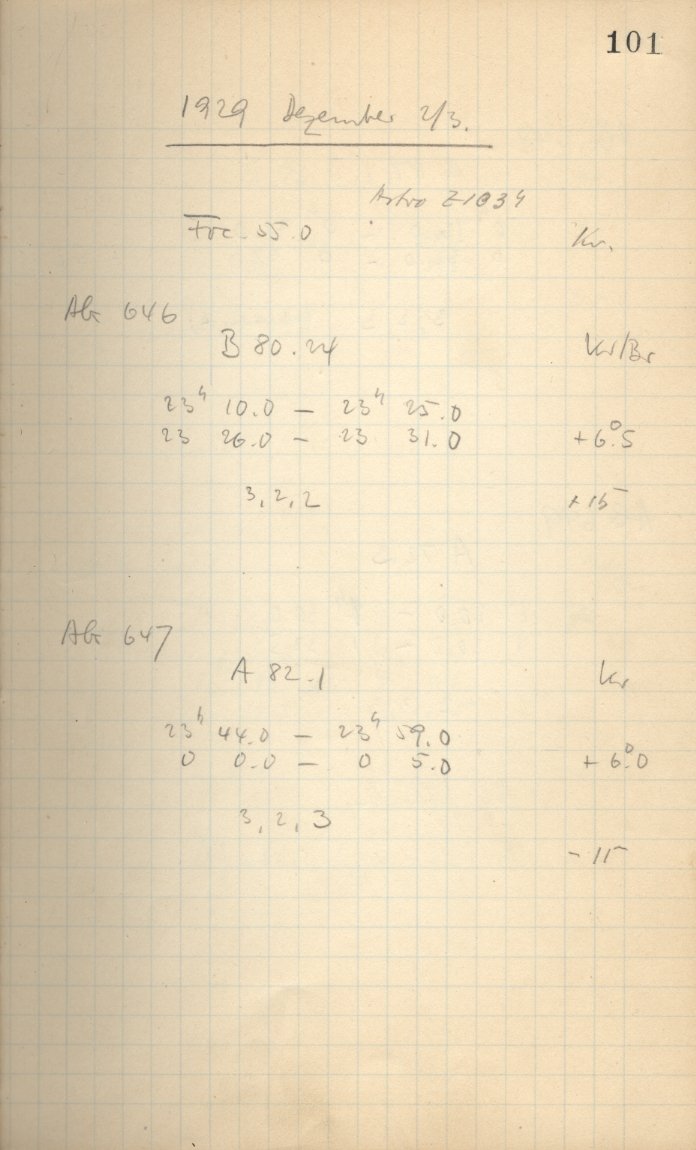 101
1929 Dezember 2/3.
Astro Z1034
Foc. 55.0 Kr.
Abr 646
B 80.24 Kr/Br
23h 10.0 — 23h 25.0
23 26.0 — 23 31.0 +6°.5
3, 2, 2 +15
Abr 647
A 82.1 Kr
23h 44.0 — 23h 59.0
0 0.0 — 0 5.0 +6°.0
3, 2, 3
-15